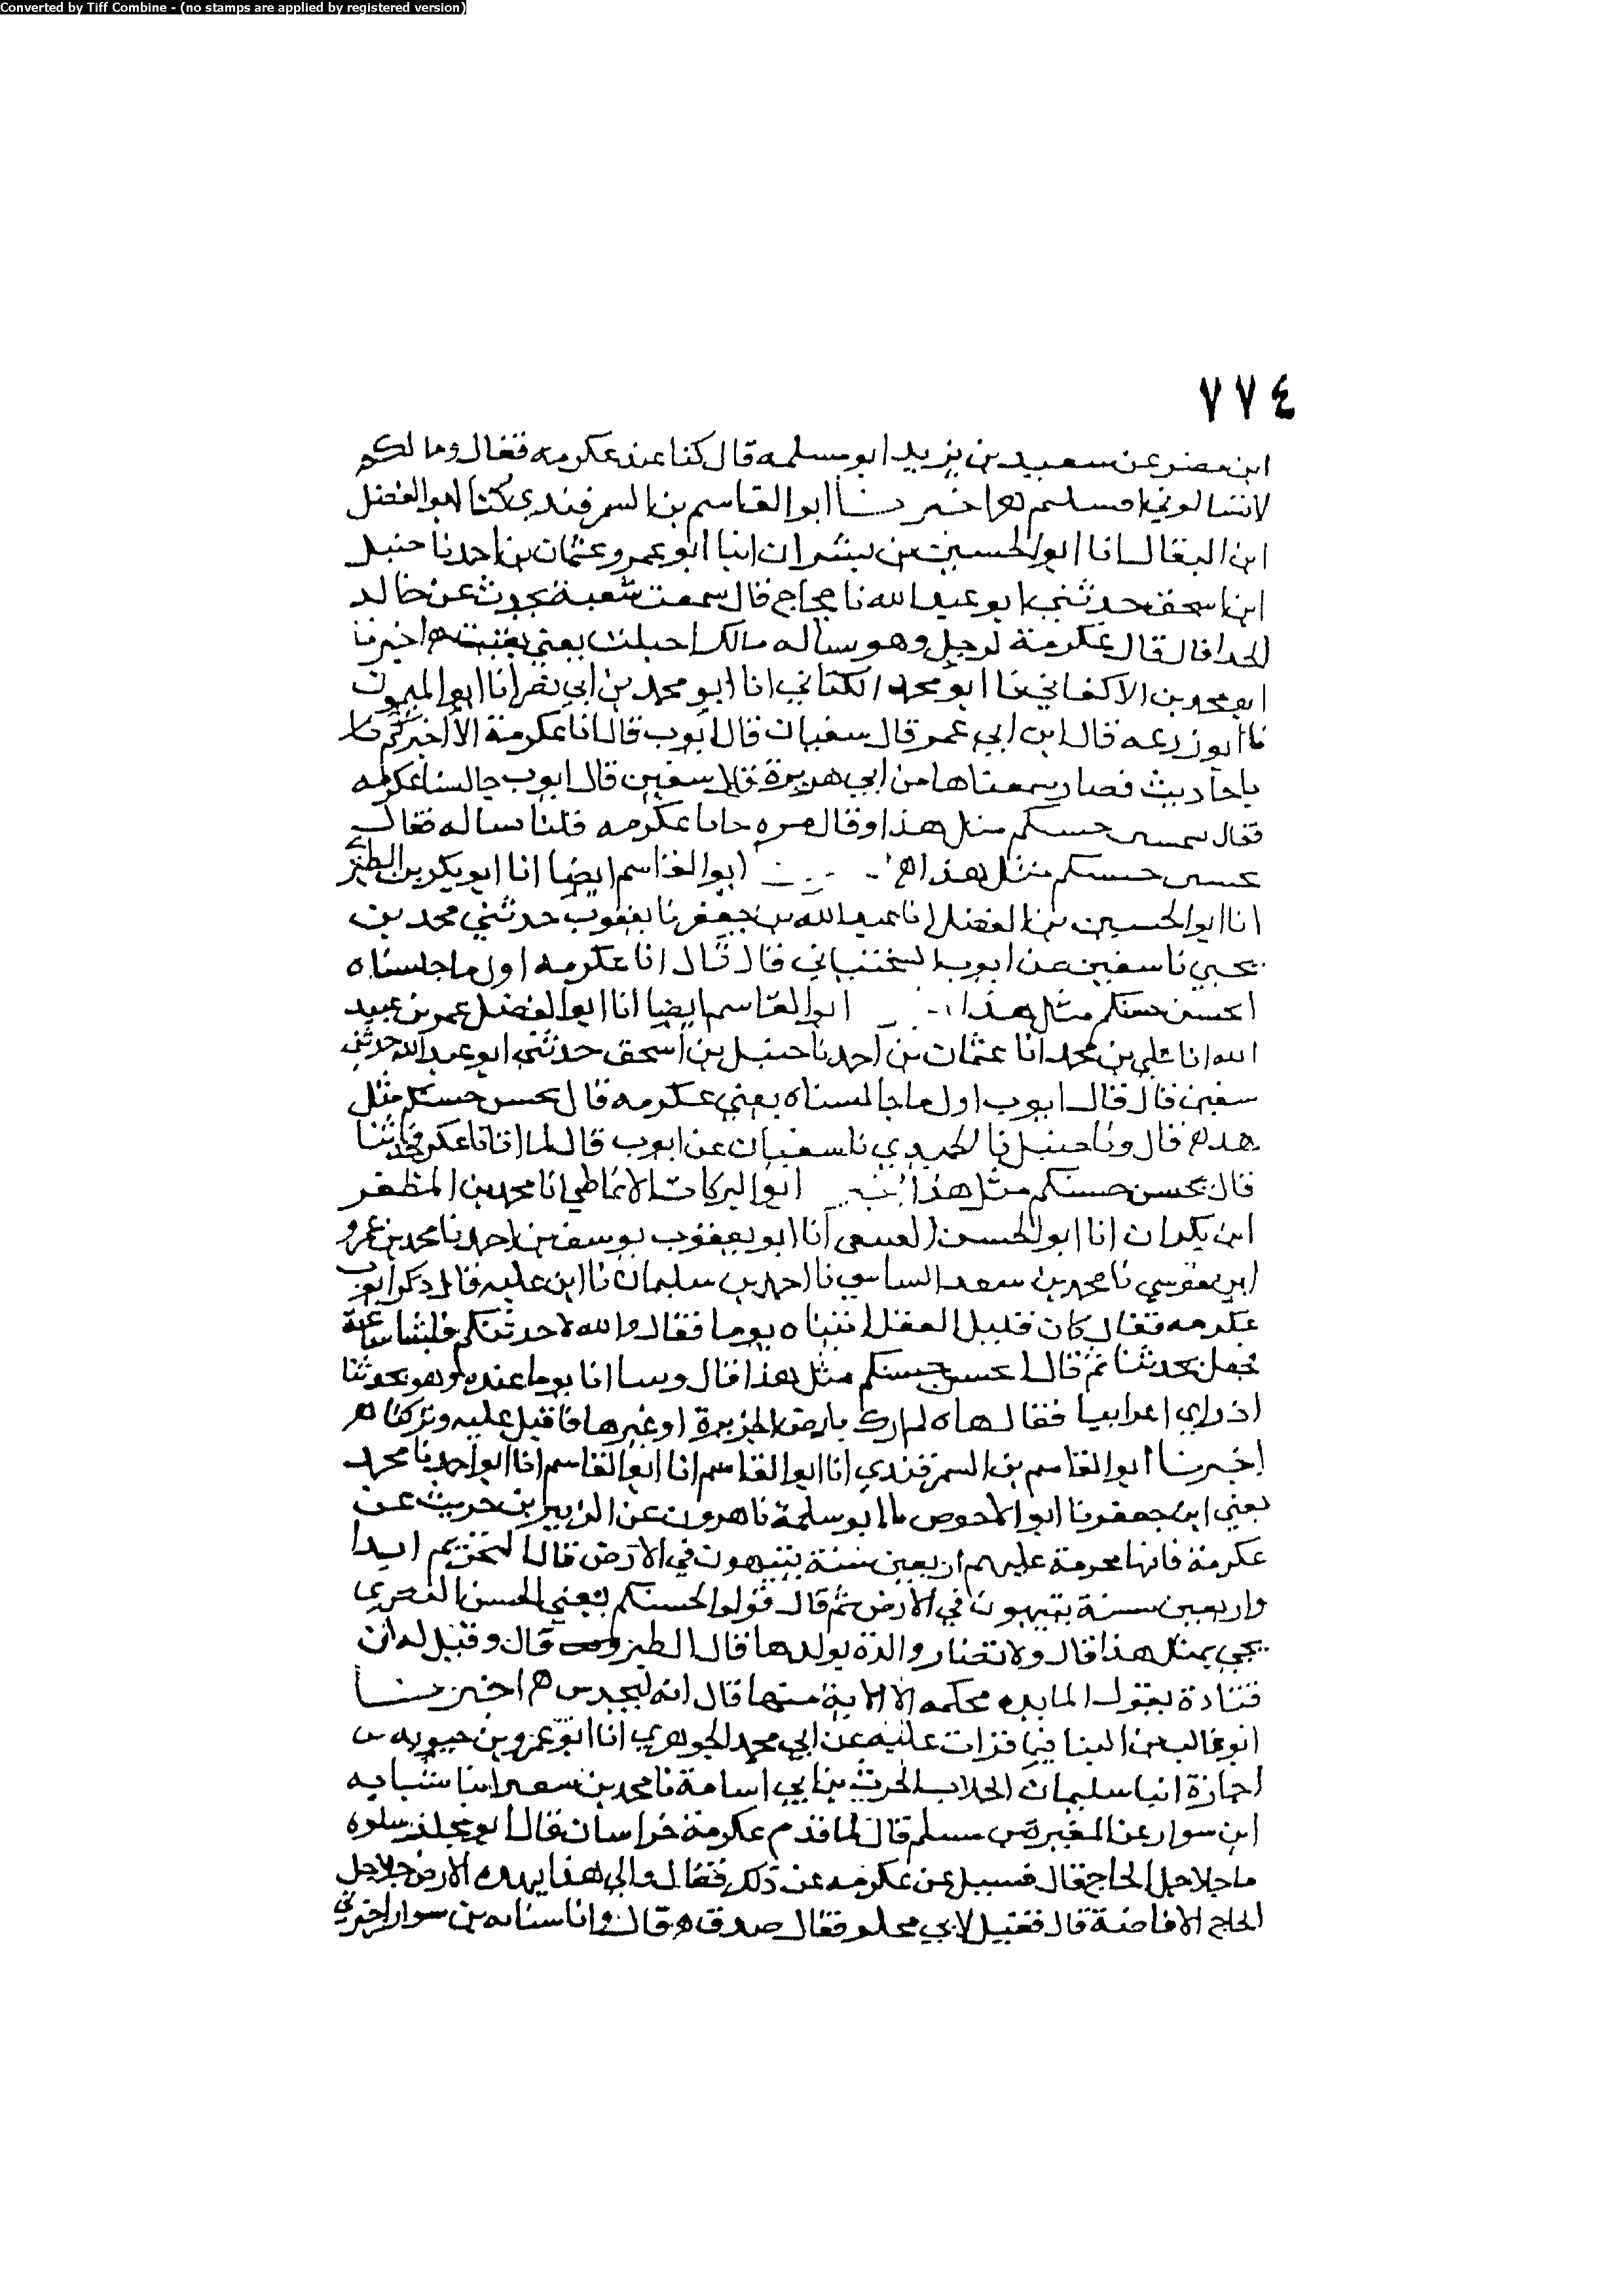 Converted by Tiff Combine - (no stamps are applied by registered version)
٧٧٤
ابن مضر عن سعيد بن يزيد ابو مسلمه قال كنا عند عكرمه فقال وما لكم
لا تسالوني افلستم ه اخبرنا ابو القاسم بن السمرقندي انا ابو الفضل
ابن البقال انا ابو الحسين بن بشران انبا ابو عمرو عثمان بن احمد نا حنبل
ابن اسحق حدثني ابو عبد الله نا حجاج قال سمعت شعبة يحدث عن خالد
الحذا قال قال عكرمة لرجل وهو يساله مالك احبلت يعني ه اخبرنا
ابو محمد بن الاكفاني نا ابو محمد الكتاني انا ابو محمد بن ابي نصر انا ابو الميمون
نا ابو زرعه قال ابن ابي عمر قال سفيان قال ايوب قال انا عكرمة الا اخبركم
باحاديث قصار سمعناها من ابي هريرة قال سفين قال ايوب جالسنا عكرمه
فقال يحسن حسنكم مثل هذا وقال مره عكرمه فقال
يحسن حسنكم مثل هذا ه ابو القاسم ايضا انا ابو بكر بن الطبري
انا ابو الحسين بن الفضل انا عبد الله بن جعفر نا يعقوب حدثني محمد بن
يحيي نا سفين عن ايوب السختياني قال قال انا عكرمه اول ما جلسناه
ايحسن حسنكم مثل هذا ابو القاسم ايضا انا ابو الفضل عمر بن عبيد
الله انا علي بن محمد انا عثمان بن احمد نا حنبل بن اسحق حدثني ابو عبد الله حدثني
سفين قال قال ايوب اول ما جالسناه يعني عكرمه قال يحسن حسنكم مثل
هذا ه قال ونا حنبل نا الحميدي نا سفيان عن ايوب قال لما اتانا عكرمه فحدثنا
قال يحسن حسنكم مثل هذا ابو البركات الانماطي انا محمد بن المظفر
ابن بكران انا ابو الحسن العتيقي انا ابو يعقوب يوسف بن احمد نا محمد بن عمرو
ابن موسي نا محمد بن سعد الشاسي نا احمد بن سليمان نا ابن عليه قال ذكر ايوب
عكرمه فقال كان قليل العقل اتيناه يوما فقال والله لاحدثنكم فلبثنا ساعة
فجعل يحدثنا ثم قال ايحسن حسنكم مثل هذا قال وبينا انا يوما عنده وهو يحدثنا
اذ راي اعرابيا فقال هاه الم ارك بارض الجزيرة او غيرها فاقبل عليه وتركنا ه
اخبرنا ابو القاسم بن السمرقندي انا ابو القاسم انا ابو القاسم انا ابو احمد نا محمد
يعني ابن جعفر نا ابو الاحوص نا ابو سلمة نا هرون عن الزبير بن حريث عن
عكرمة فانها محرمة عليهم اربعين سنة يتيهون في الارض قال التحريم ابدا
واربعين سنة يتيهون في الارض ثم قال قولوا لحسنكم يعني الحسن البصري
يجي بمثل هذا قال ولا تضار والدة بولدها قال الطير قال وقيل له ان
قتادة يقول المايده محكمه الا اية منها قال انه ليجدس ه اخبرنا
ابو غالب بن البنا فيما قرات عليه عن ابي محمد الجوهري انا ابو عمرو بن حيويه
اجازة انبا سليمان الجلاب الحرث بن ابي اسامة نا محمد بن سعد انبا شبابه
ابن سوار عن المغيرة بن مسلم قال لما قدم عكرمة خراسان قال ابو مجلز سلوه
ما جلاجل الحاج قال فسيل عن عكرمه عن ذلك فقال واني هذا بهذه الارض جلاجل
الحاج الافاضة قال فقيل لابي مجلز فقال صدق ه قال وانا شبابه بن سوار اخبرني